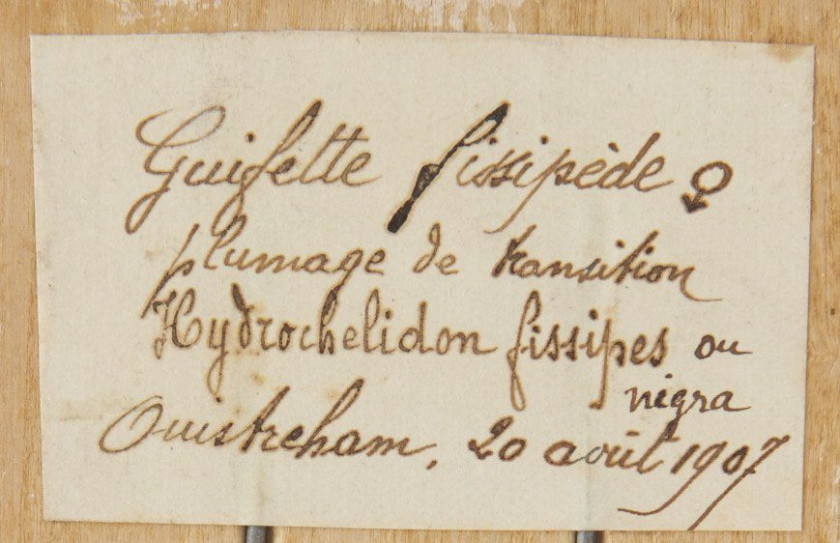 Guifette fissipède ♂
plumage de transition
Hydrochelidon fissipes ou
nigra
Ouistreham, 20 août 1907